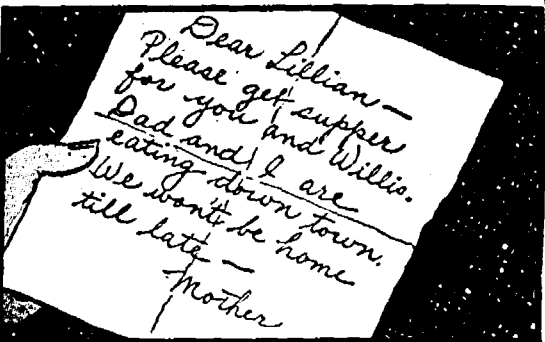 Dear Lillian—
Please get supper
for you and Willis.
Dad and I are
eating down town.
We won't be home
till late—
Mother